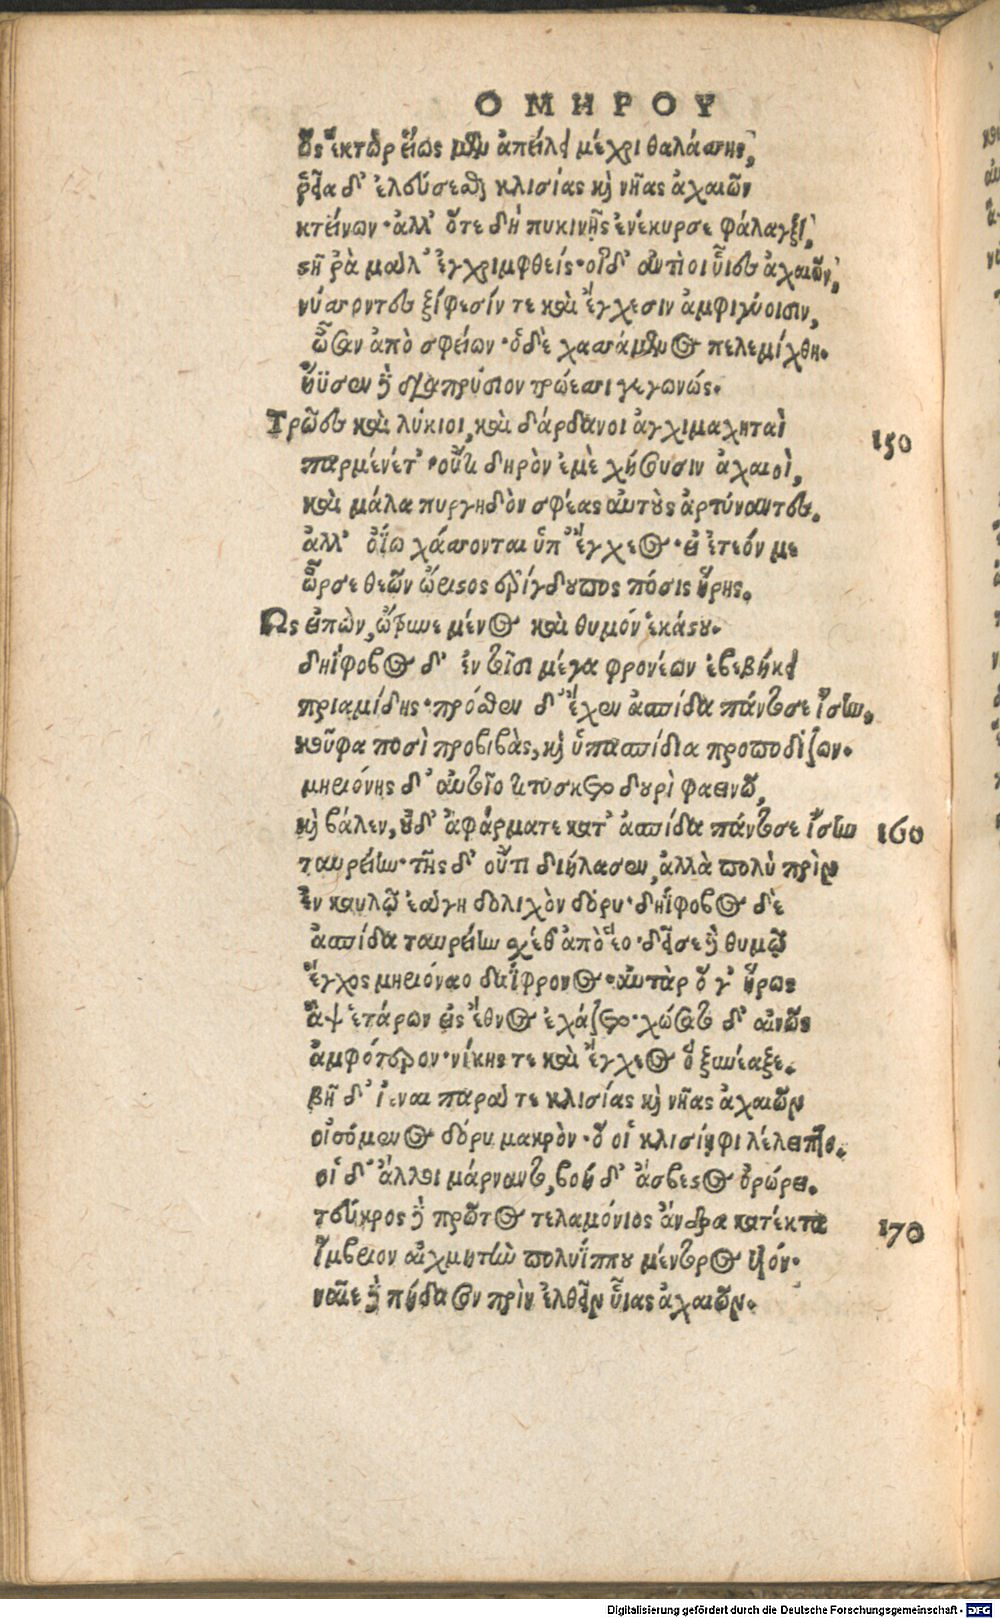 ΟΜΗΡΟΥ
ὣς ἕκτωρ εἵως μὲν ἀπείλει μέχρι θαλάσσης,
ῥεῖα διελεύσεσθαι κλισίας καὶ νῆας ἀχαιῶν
κτείνων· ἀλλ' ὅτε δὴ πυκινῇς ἐνέκυρσε φάλαγξι,
στῆ ῥὰ μάλ' ἐγχριμφθείς· οἱ δ' ἀντίοι υἷες ἀχαιῶν,
νύσσοντες ξίφεσίν τε καὶ ἔγχεσιν ἀμφιγύοισιν,
ὦσαν ἀπὸ σφείων· ὁ δὲ χασσάμενος πελεμίχθη.
ἤϋσεν δὲ διαπρύσιον τρώεσσι γεγωνώς.
Τρῶες καὶ λύκιοι, καὶ δάρδανοι ἀγχιμαχηταὶ
150
παρμένετ'· οὔτι δηρὸν ἐμὲ σχήσουσιν ἀχαιοὶ,
καὶ μάλα πυργηδὸν σφέας αὐτοὺς ἀρτύναντες.
ἀλλ' ὀΐω χάσσονται ὑπ' ἔγχεος· εἰ ἐτεόν με
ὦρσε θεῶν ὤριστος ἐρίγδουπος πόσις ἥρης.
Ὣς εἰπὼν, ὤτρυνε μένος καὶ θυμόν ἑκάστου.
δηΐφοβος δ' ἐν τοῖσι μέγα φρονέων ἐβεβήκει
πριαμίδης· πρόσθεν δ' ἔχεν ἀσπίδα πάντοσε ἴσην,
κοῦφα ποσὶ προβιβὰς, καὶ ὑπασπίδια προποδίζων.
μηριόνης δ' αὐτοῖο τιτύσκετο δουρὶ φαεινῷ,
καὶ βάλεν, οὐδ' ἀφάρματε κατ' ἀσπίδα πάντοσε ἴσην
160
ταυρείην· τῆς δ' οὔτι διήλασεν, ἀλλὰ πολὺ πρὶν
ἐν καυλῷ ἐάγη δολιχὸν δόρυ· δηΐφοβος δὲ
ἀσπίδα ταυρείην σχέθ' ἀπὸ ἕο· δεῖσε δὲ θυμῷ
ἔγχος μηριόναο δαΐφρονος· αὐτὰρ ὅ γ' ἥρως
ἂψ ἑτάρων εἰς ἔθνος ἐχάζετο· χώσατο δ' αἰνῶς
ἀμφότερον· νίκης τε καὶ ἔγχεος ὃ ξυνέαξε.
βῆ δ' ἰέναι παρά τε κλισίας καὶ νῆας ἀχαιῶν
οἰσόμενος δόρυ μακρὸν· ὅ οἱ κλισίηφι λέλειπτο.
οἱ δ' ἄλλοι μάρναντο, βοὴ δ' ἄσβεστος ὀρώρει.
τεῦκρος δὲ πρῶτος τελαμόνιος ἄνδρα κατέκτα
170
ἴμβριον αἰχμητὴν πολυΐππου μέντορος υἱόν·
ναῖε δὲ πήδαιον πρὶν ἐλθεῖν υἷας ἀχαιῶν.
Digitalisierung gefördert durch die Deutsche Forschungsgemeinschaft - DFG